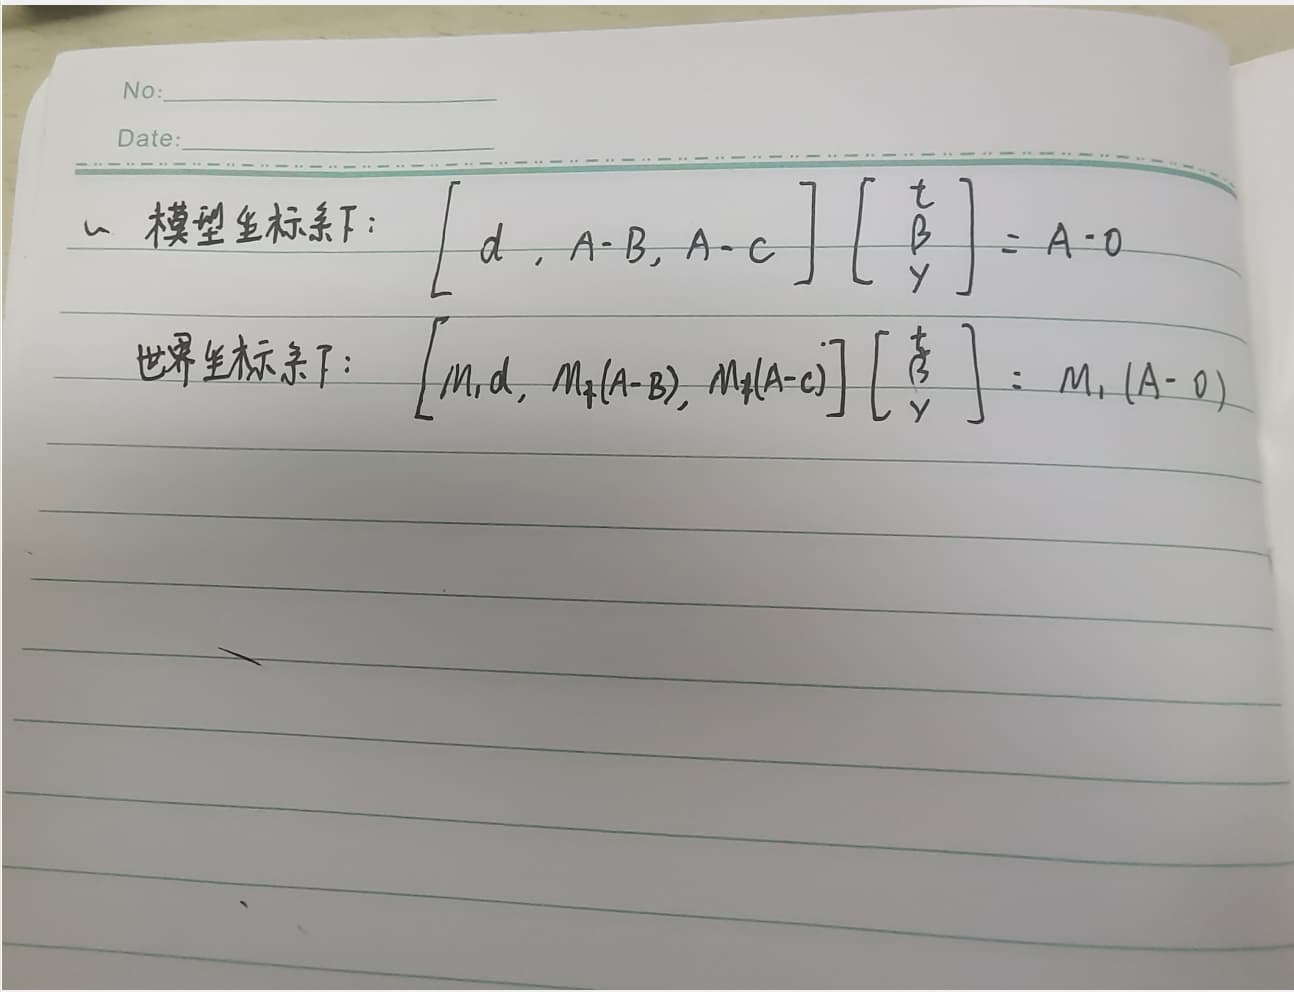 No:
Date:
模型坐标系下: [ d , A-B, A-C ] [ t β γ ] = A-O
世界坐标系下: [ M₁d, M₁(A-B), M₁(A-C) ] [ t β γ ] = M₁(A-O)